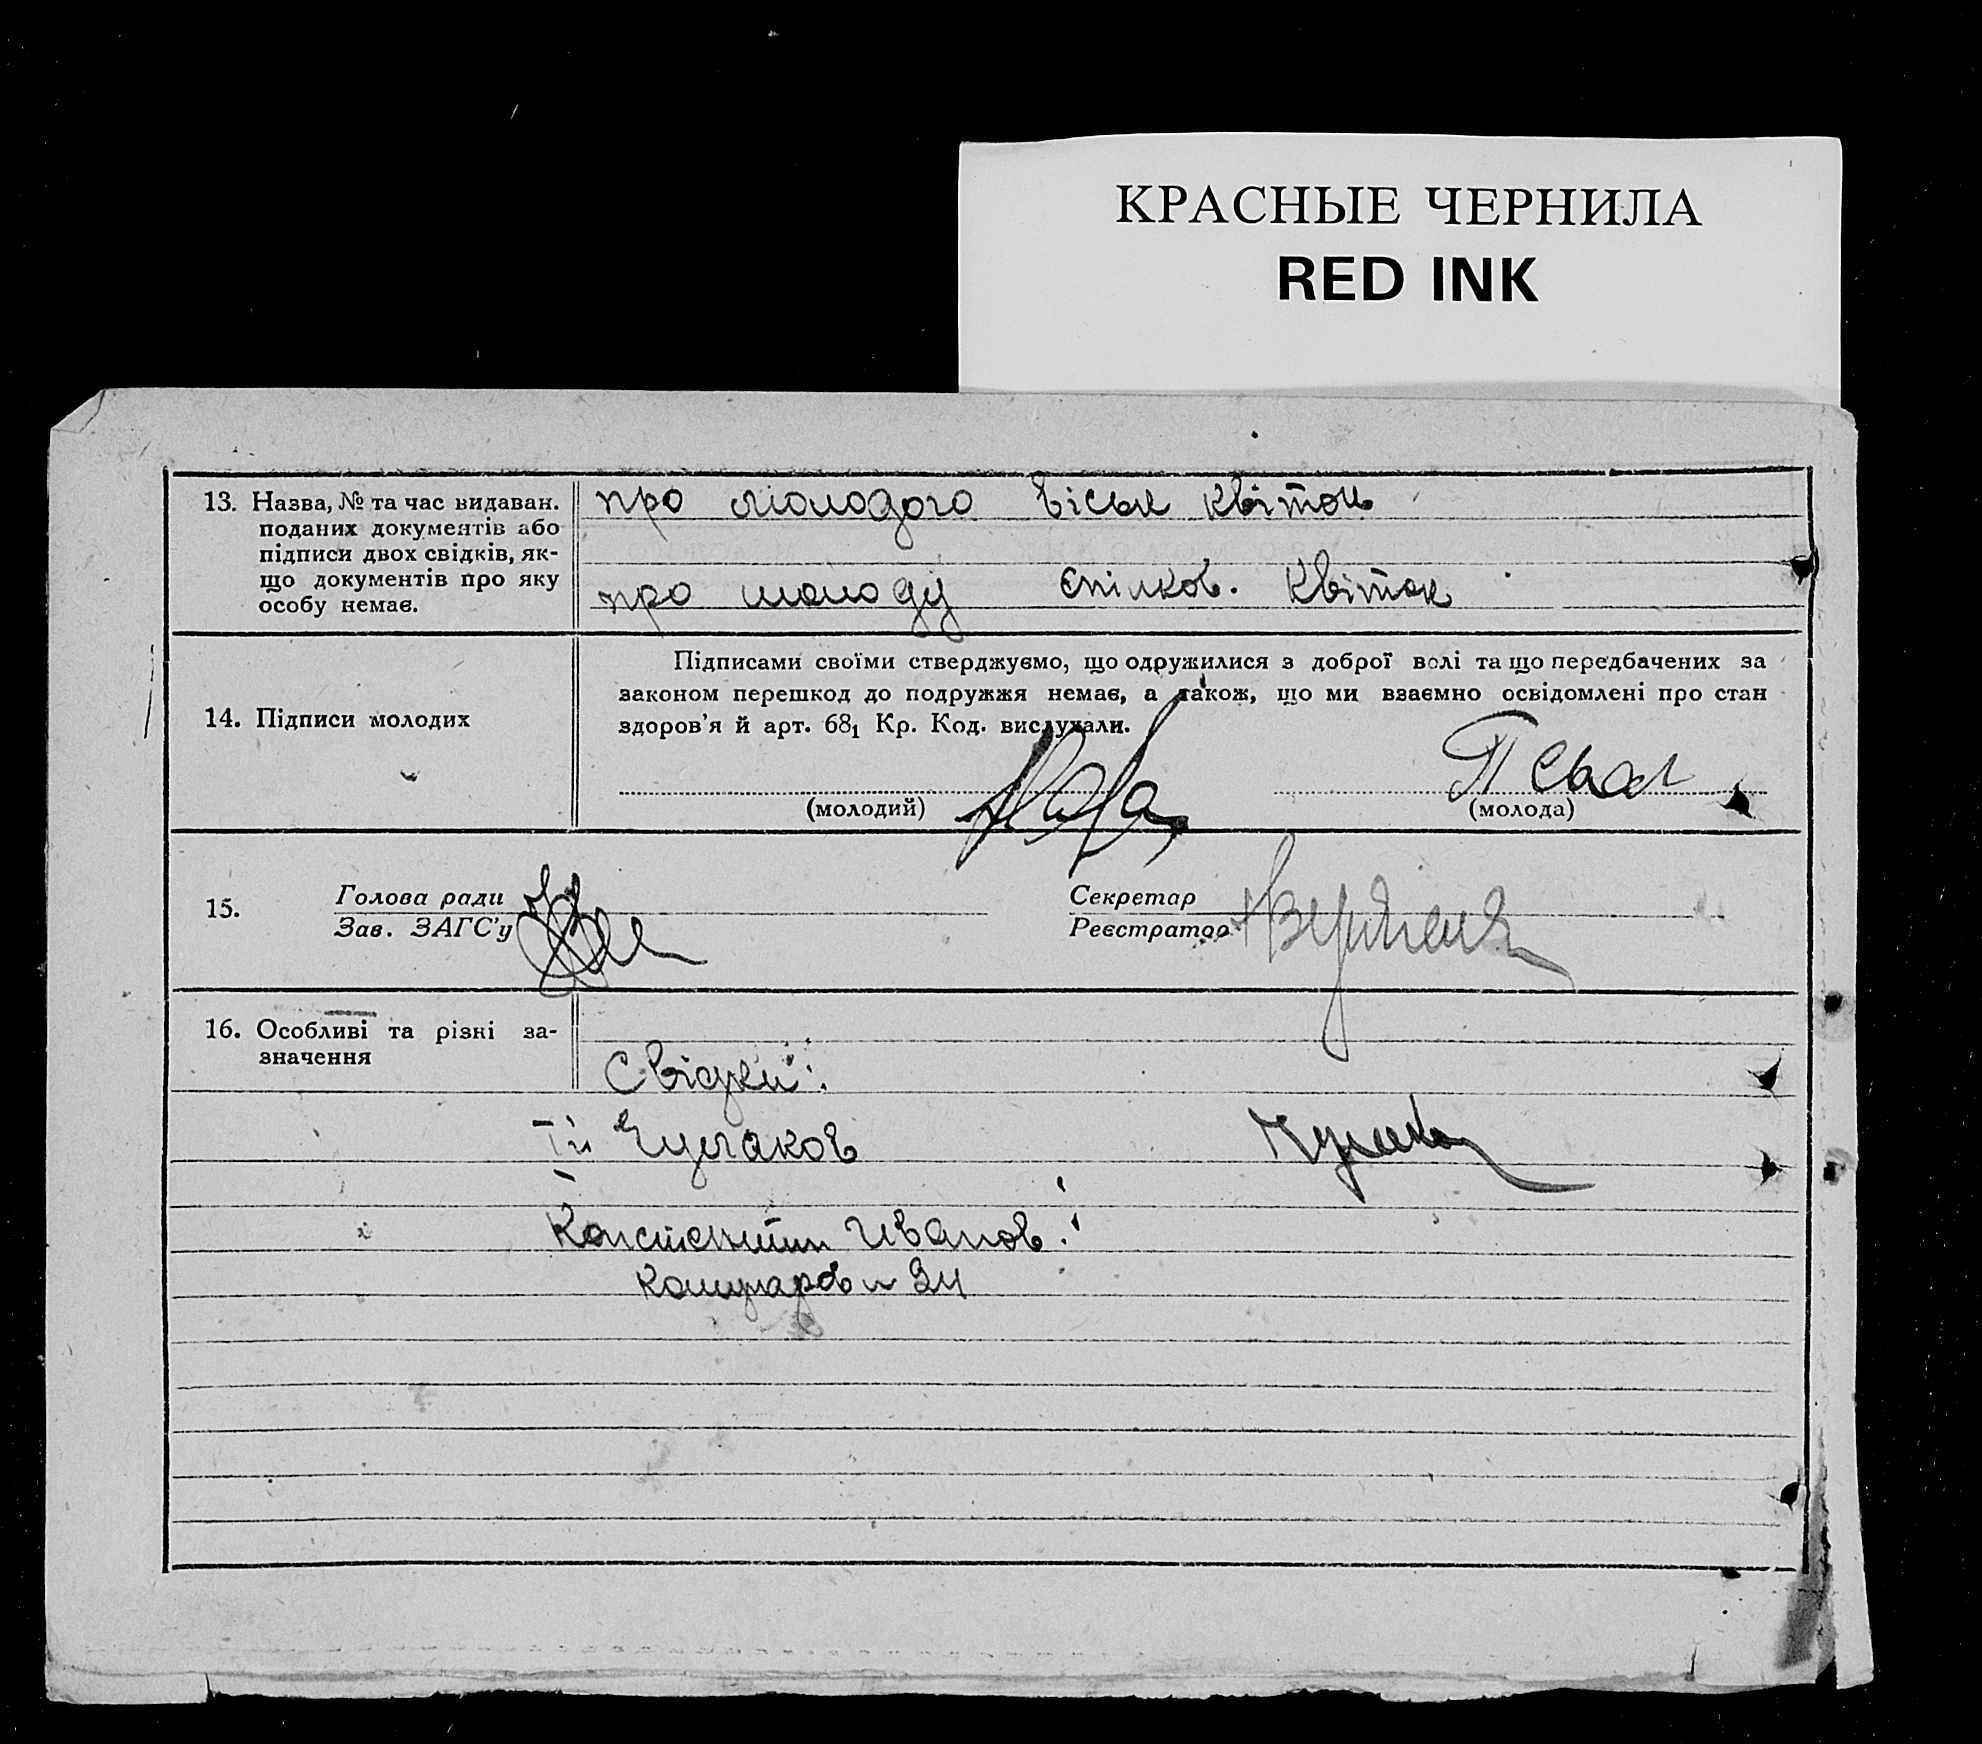 КРАСНЫЕ ЧЕРНИЛА
RED INK
13. Назва, № та час видаван.
поданих документів або
підписи двох свідків, як-
що документів про яку
особу немає.
про молодого Війск квіток
про молоду Спілков. Квіток
14. Підписи молодих
Підписами своїми стверджуємо, що одружилися з доброї волі та що передбачених за
законом перешкод до подружжя немає, а також, що ми взаємно освідомлені про стан
здоров'я й арт. 68₁ Кр. Код. вислухали.
(молодий)
(молода)
15.
Голова ради
Зав. ЗАГС'у
Секретар
Реєстратор
16. Особливі та різні за-
значення
Свідки:
Константин Иванов.